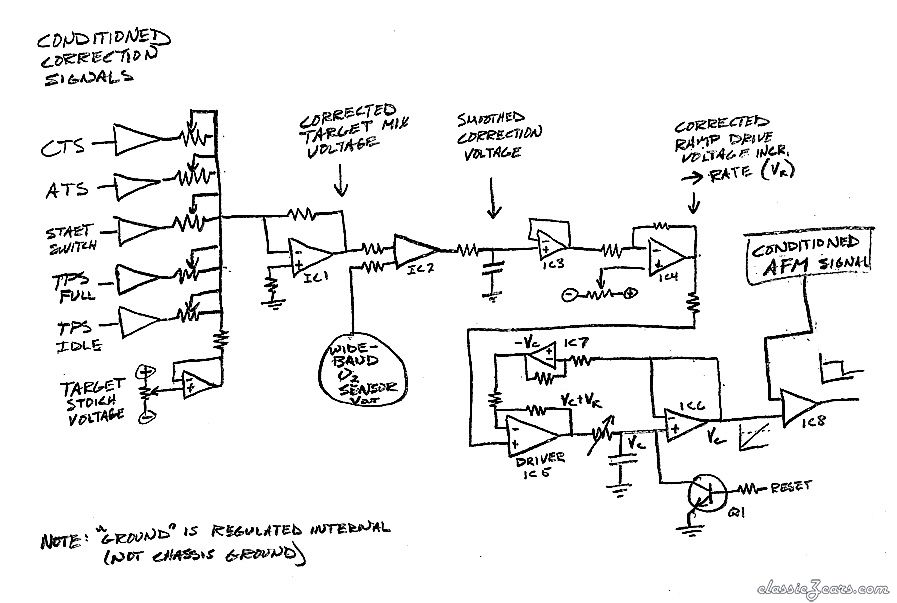 CONDITIONED
CORRECTION
SIGNALS
CTS
ATS
START
SWITCH
TPS
FULL
TPS
IDLE
TARGET
STOICH
VOLTAGE
+
-
CORRECTED
TARGET MIX
VOLTAGE
- +
IC1
IC2
WIDE-
BAND
O2
SENSOR
VOUT
SMOOTHED
CORRECTION
VOLTAGE
- +
IC3
CORRECTED
RAMP DRIVE
VOLTAGE INCR.
→ RATE (VR)
- +
IC4
- +
CONDITIONED
AFM SIGNAL
-VC
IC7
VC+VR
- +
DRIVER
IC5
VC
- +
IC6
VC
- +
IC8
RESET
Q1
NOTE: "GROUND" IS REGULATED INTERNAL
(NOT CHASSIS GROUND)
classicZcars.com